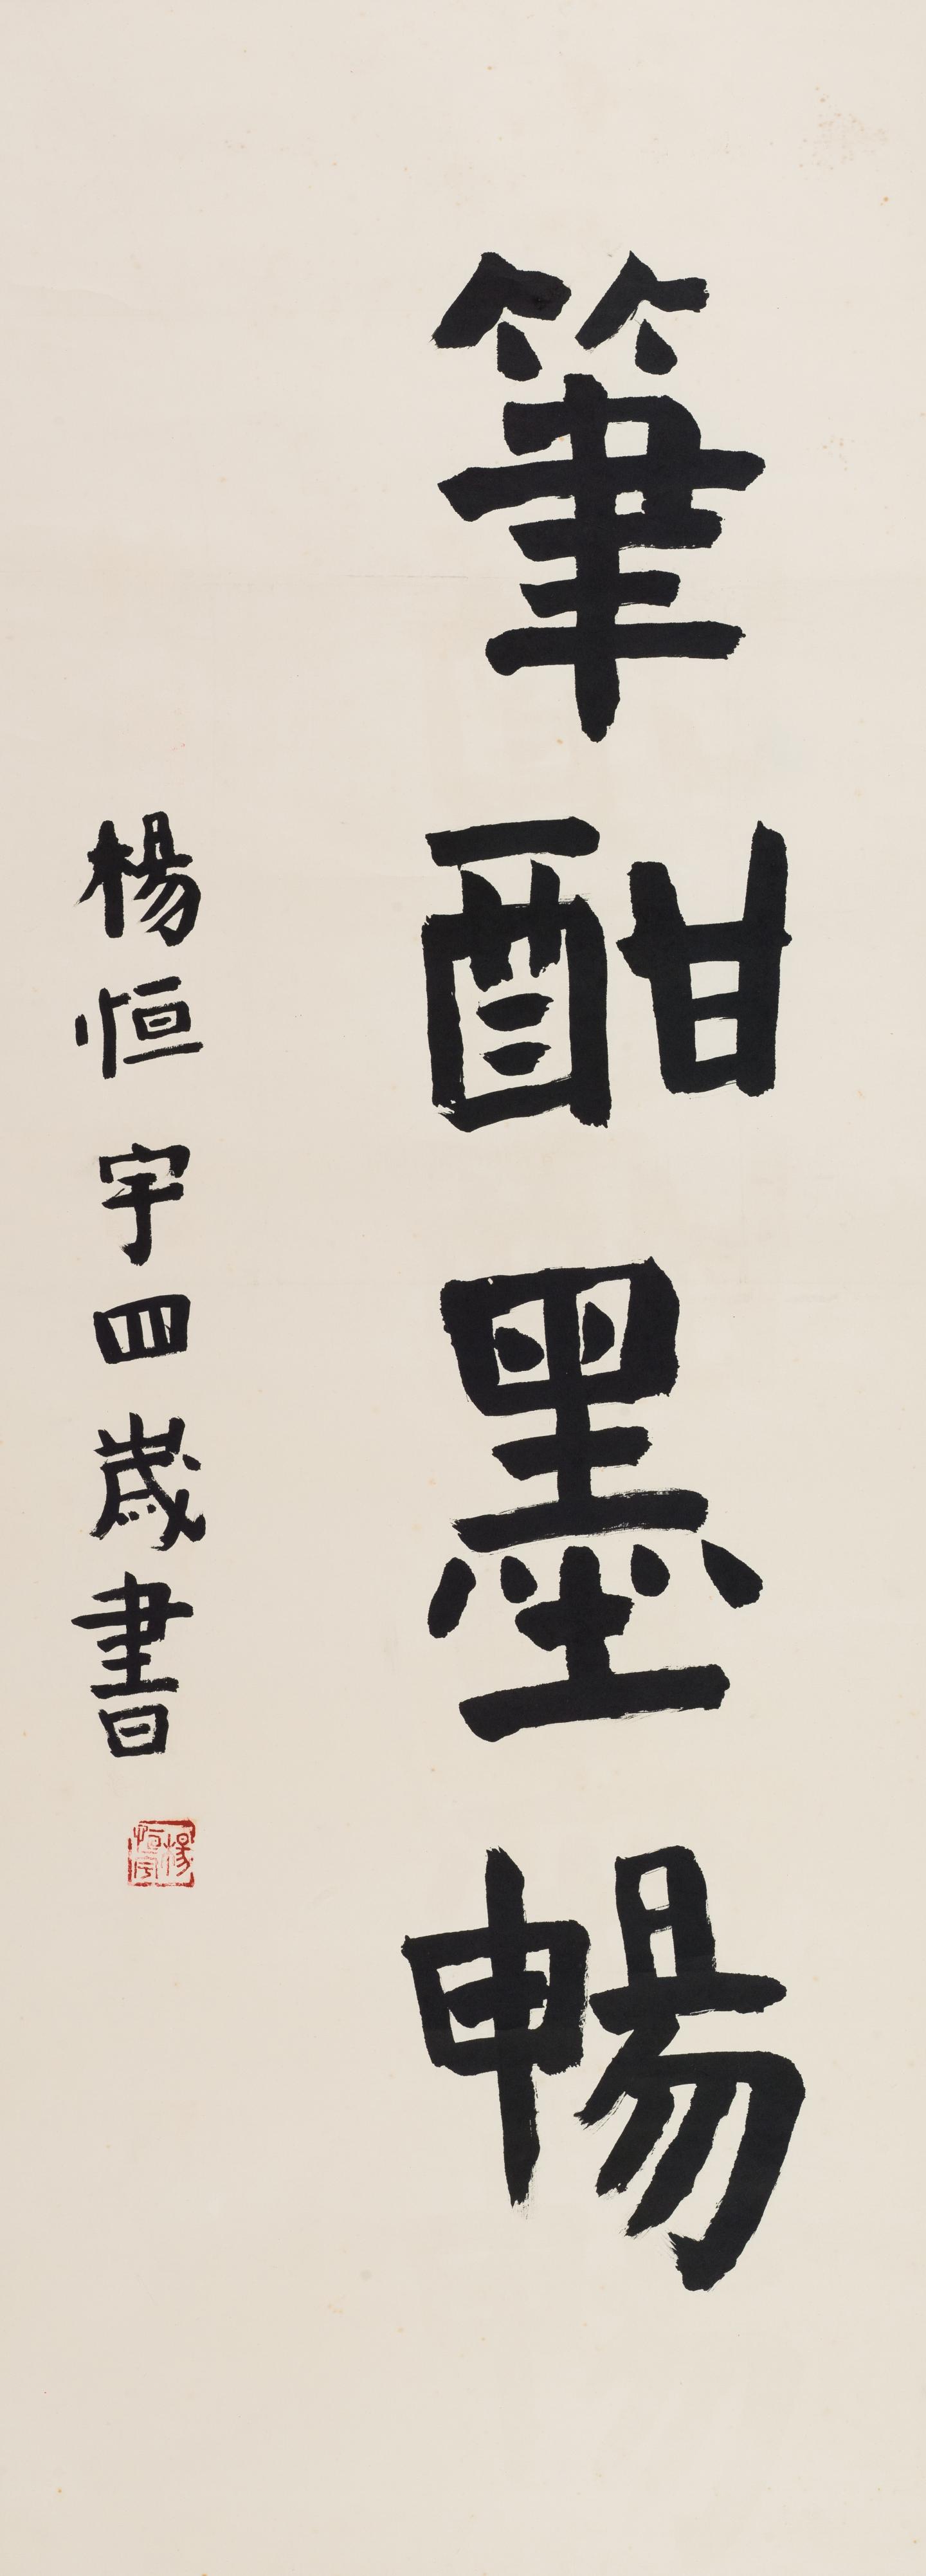 筆酣墨暢
楊恒宇四歲書
楊恒宇